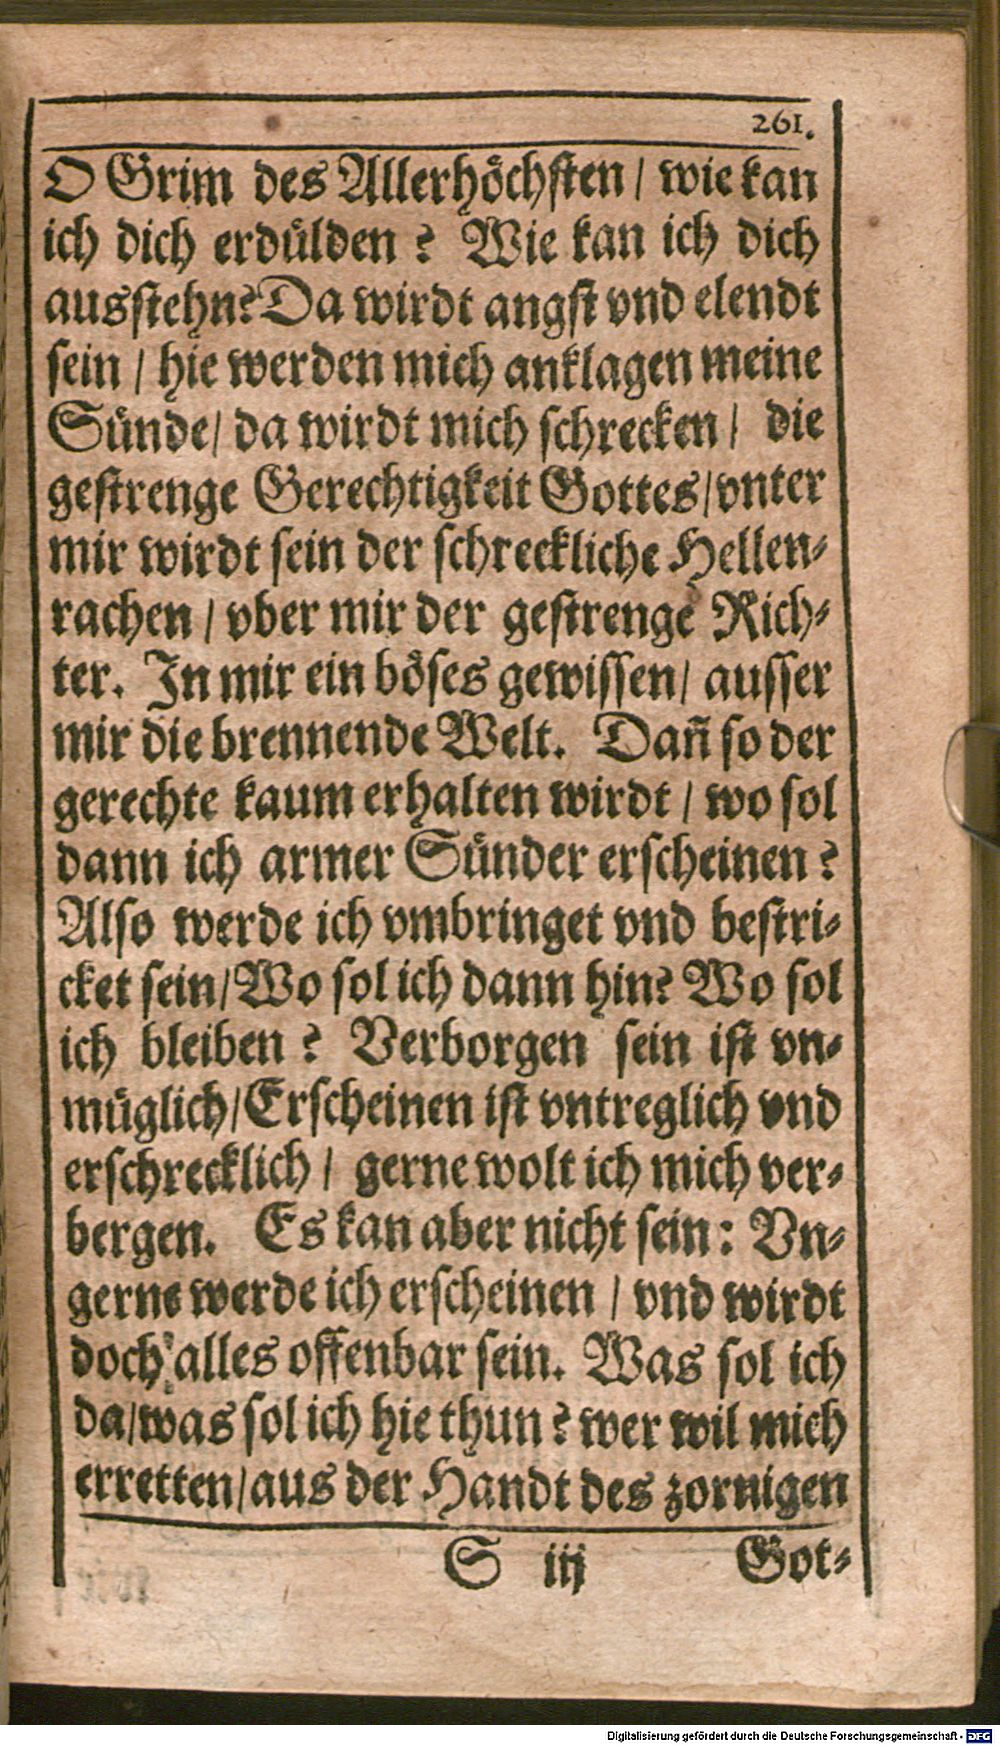 261.
O Grim des Allerhöchsten / wie kan
ich dich erdülden ? Wie kan ich dich
ausstehn? Da wirdt angst vnd elendt
sein / hie werden mich anklagen meine
Sünde / da wirdt mich schrecken / die
gestrenge Gerechtigkeit Gottes / vnter
mir wirdt sein der schreckliche Hellen-
rachen / vber mir der gestrenge Rich-
ter. In mir ein böses gewissen / ausser
mir die brennende Welt. Dañ so der
gerechte kaum erhalten wirdt / wo sol
dann ich armer Sünder erscheinen ?
Also werde ich vmbringet vnd bestri-
cket sein / Wo sol ich dann hin? Wo sol
ich bleiben ? Verborgen sein ist vn-
müglich / Erscheinen ist vntreglich vnd
erschrecklich / gerne wolt ich mich ver-
bergen. Es kan aber nicht sein : Vn-
gerne werde ich erscheinen / vnd wirdt
doch alles offenbar sein. Was sol ich
da / was sol ich hie thun ? wer wil mich
erretten / aus der Handt des zornigen
S iij Got-
Digitalisierung gefördert durch die Deutsche Forschungsgemeinschaft - DFG